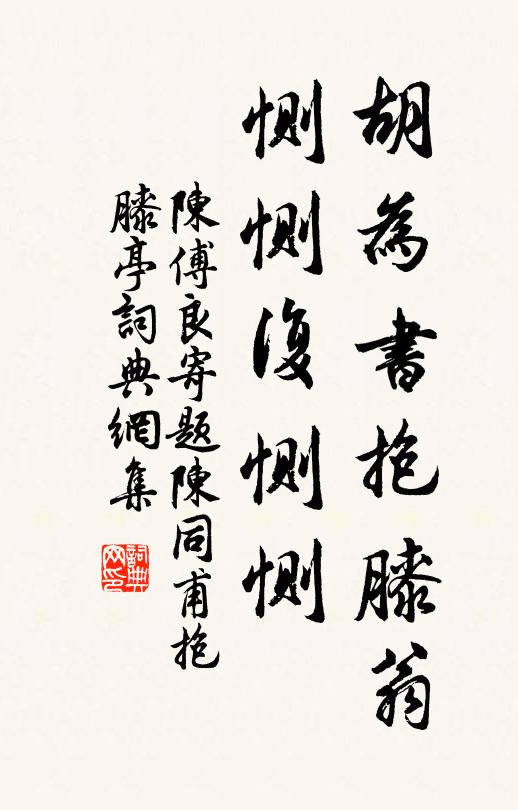 胡為書抱膝翁
惻惻復惻惻
陳傅良寄題陳同甫抱
膝亭詞典網集
詞典網印